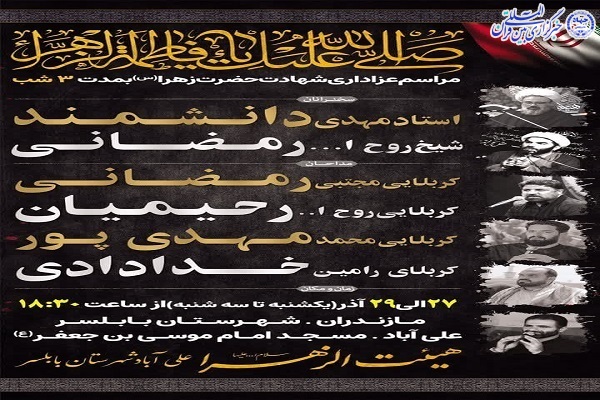 خبرگزاری بین المللی قرآن
صلی الله علیک یا فاطمة الزهرا
مراسم عزاداری شهادت حضرت زهرا(س) بمدت ۳ شب
سخنرانان
استاد مهدی دانشمند
شیخ روح ا... رمضانی
مداحان
کربلایی مجتبی رمضانی
کربلایی روح ا.. رحیمیان
کربلایی محمد مهدی پور
کربلای رامین خدادادی
زمان و مکان
۲۷ الی ۲۹ آذر (یکشنبه تا سه شنبه) از ساعت ۱۸:۳۰
مازندران . شهرستان بابلسر
علی آباد . مسجد امام موسی بن جعفر(ع)
هیئت الزهرا سلام ا... علیها علی آباد شهرستان بابلسر